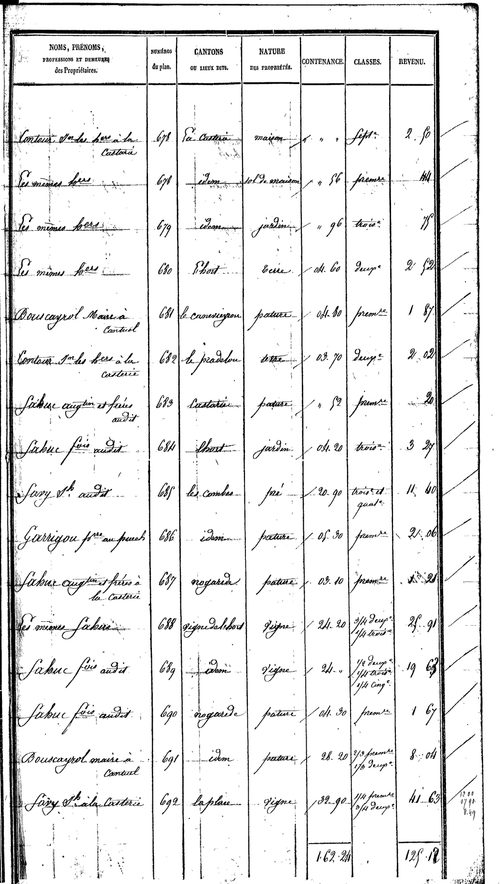 NOMS, PRÉNOMS, PROFESSIONS ET DEMEURES des Propriétaires. | NUMÉROS du plan. | CANTONS OU LIEUX DITS. | NATURE DES PROPRIÉTÉS. | CONTENANCE. | CLASSES. | REVENU.
Contour Jn les hers à la Casterie 678 La Casterie maison " " Septe 2 50
Les mêmes hers 678 idem sol de maison " 56 premre 44
Les mêmes hers 679 idem jardin " 96 troise 75
Les mêmes hers 680 Lhort terre 04. 60 deuxe 2 52
Bouscayrol Maire à Cantuel 681 pature 04. 80 premre 1 87
Contour Jn les hers à la Casterie 682 le pradelou terre 03. 70 deuxe 2 02
Sahuc augtin et frères audit 683 Casterie pature " 52 premre 20
Sahuc fois audit 684 lhort jardin 04. 20 troise 3 27
Savy audit 685 les Combes pré 20. 90 troise et quate 11 40
Garrigou prre au puech 686 idem pature 05. 30 premre 2 06
Sahuc augtin et frères à la Casterie 687 nogarede pature 03. 10 premre 1 21
Les mêmes Sahuc 688 vigne de lhort vigne 24. 20 3/4 deuxe 1/4 troise 25 91
Sahuc fois audit 689 idem vigne 24. " 1/2 deuxe 1/4 troise 1/4 cinqe 19 63
Sahuc fois audit 690 nogarede pature 04. 30 premre 1 67
Bouscayrol maire à Cantuel 691 idem pature 28. 20 2/3 premre 1/3 deuxe 8 04
Savy à la Casterie 692 laplane vigne 32. 90 1/4 premre 3/4 deuxe 41 63
1. 62. 24 125. 12